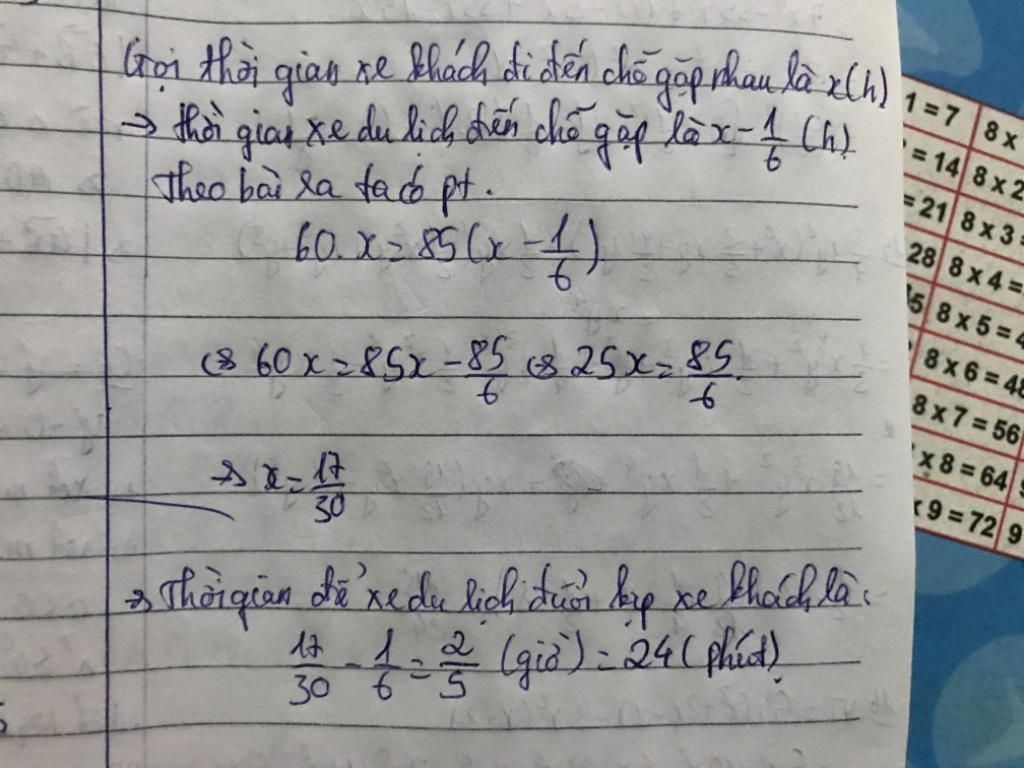 Gọi thời gian xe khách đi đến chỗ gặp nhau là x(h)
→ thời gian xe du lịch đến chỗ gặp là x - 1/6 (h)
Theo bài ra ta có pt.
60.x = 85(x - 1/6)
⇔ 60x = 85x - 85/6 ⇔ 25x = 85/6.
→ x = 17/30
→ Thời gian để xe du lịch đuổi kịp xe khách là:
17/30 - 1/6 = 2/5 (giờ) = 24 (phút).
1 = 7 8 x
= 14 8 x 2
= 21 8 x 3 =
28 8 x 4 =
5 8 x 5 = 4
8 x 6 = 48
8 x 7 = 56
x 8 = 64
x 9 = 72 9